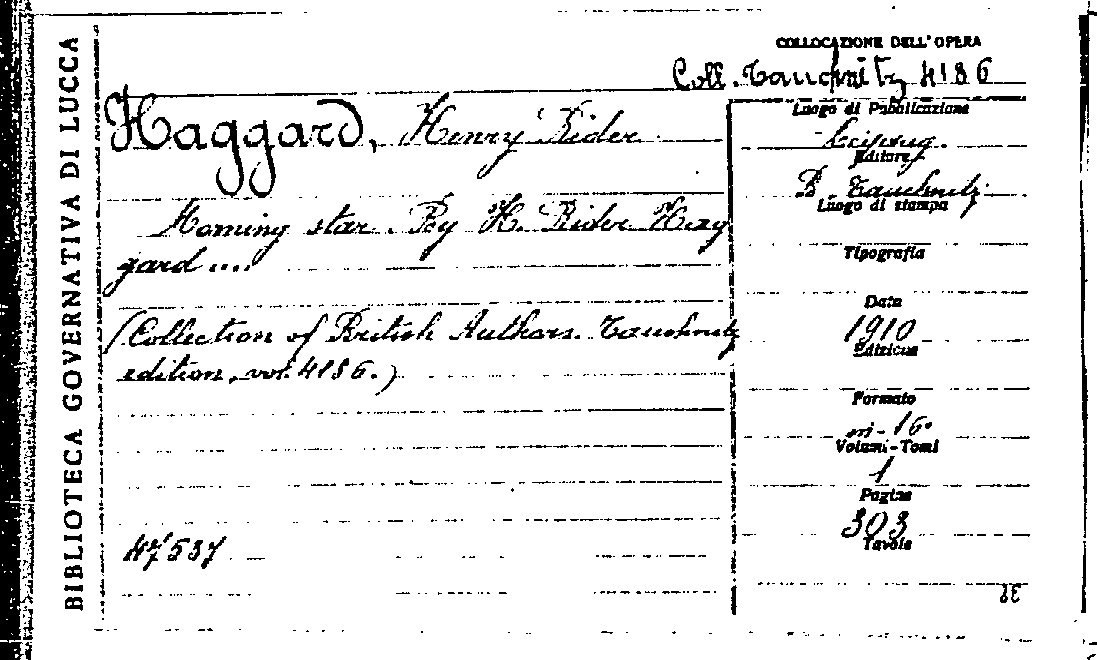 BIBLIOTECA GOVERNATIVA DI LUCCA
COLLOCAZIONE DELL'OPERA
Coll. Tauchnitz 4186
Haggard, Henry Rider
Morning star. By H. Rider Hag
gard ....
(Collection of British Authors. Tauchnitz
edition, vol. 4186.)
47537
Luogo di Pubblicazione
Leipzig.
Editore
B. Tauchnitz
Luogo di stampa
Tipografia
Data
1910
Edizione
Formato
in-16°
Volumi-Tomi
1
Pagine
303
Tavole